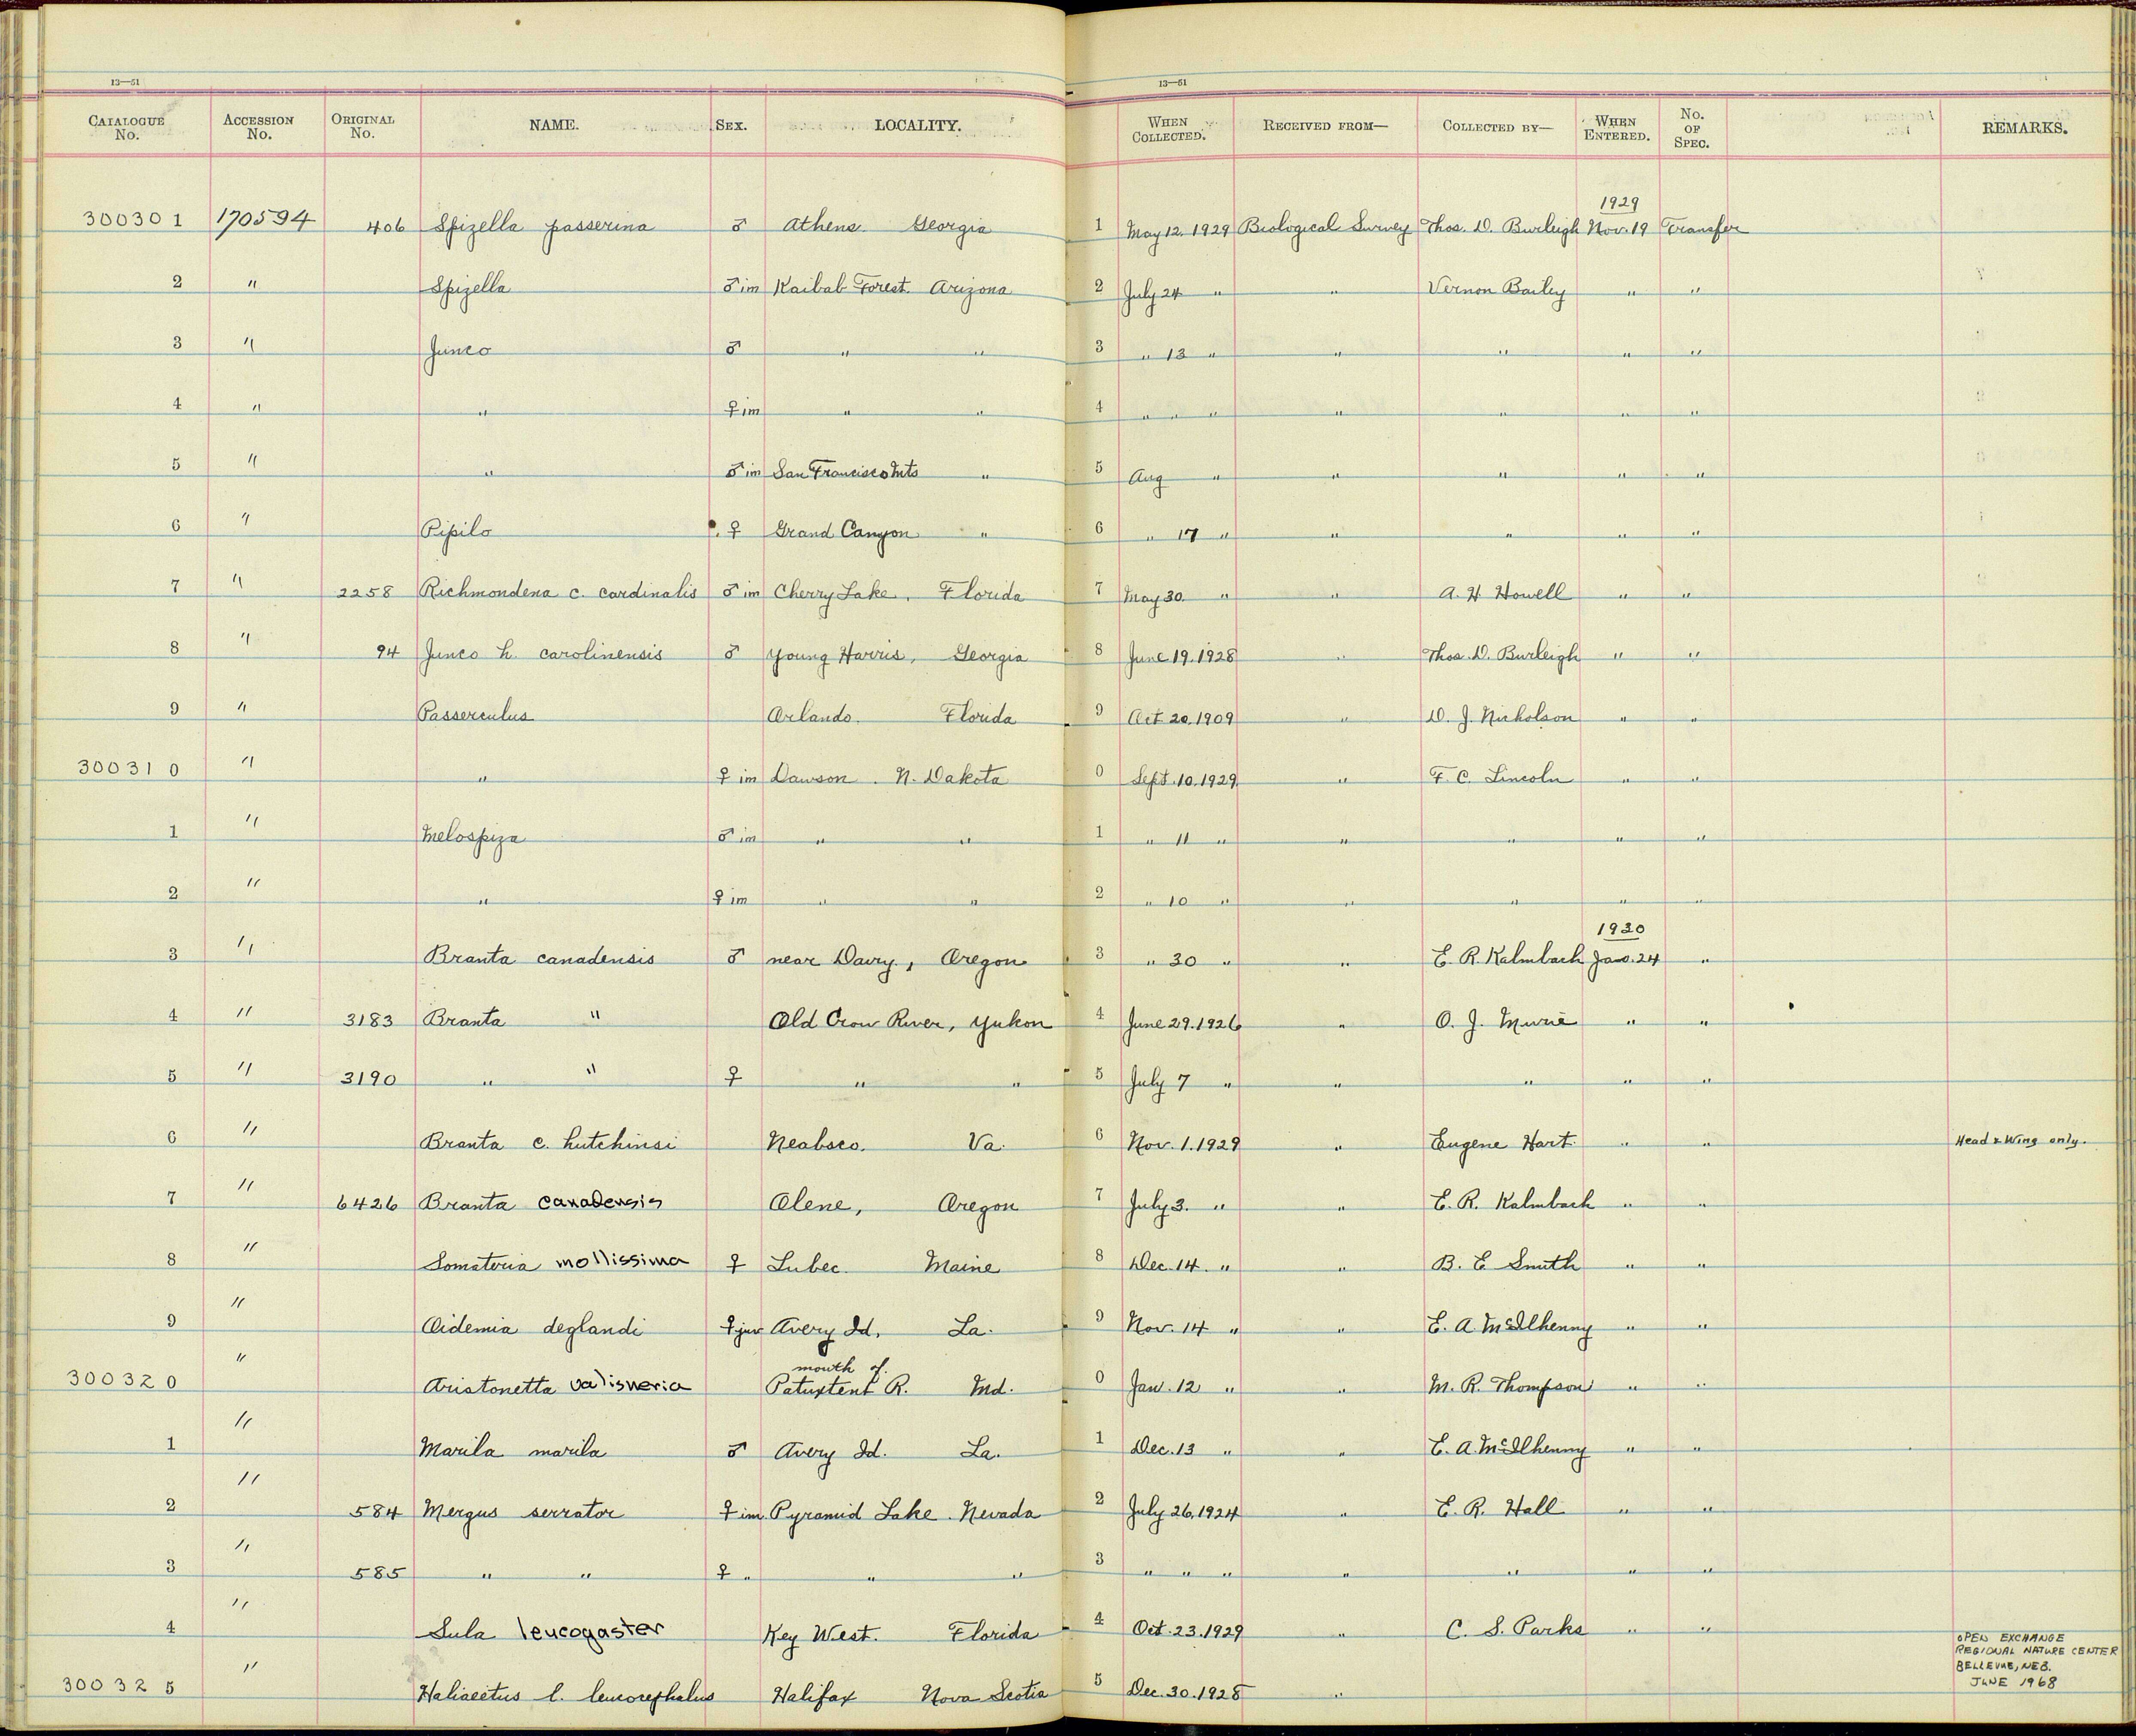 13—51 13—51
CATALOGUE No. ACCESSION No. ORIGINAL No. NAME. SEX. LOCALITY. WHEN COLLECTED. RECEIVED FROM— COLLECTED BY— WHEN ENTERED. No. OF SPEC. REMARKS.
1929
300301 170594 406 Spizella passerina ♂ Athens. Georgia 1 May 12. 1929 Biological Survey Thos. D. Burleigh Nov. 19 Transfer
2 " Spizella ♂ im Kaibab Forest. Arizona 2 July 24 " " Vernon Bailey " "
3 " Junco ♂ " " 3 " 13 " " " " "
4 " " ♀ im " " 4 " " " " " " "
5 " " ♂ im San Francisco Mts " 5 Aug " " " " "
6 " Pipilo ♀ Grand Canyon " 6 " 17 " " " " "
7 " 2258 Richmondena c. cardinalis ♂ im Cherry Lake, Florida 7 May 30. " " A. H. Howell " "
8 " 94 Junco h. carolinensis ♂ Young Harris, Georgia 8 June 19. 1928 " Thos. D. Burleigh " "
9 " Passerculus Orlando. Florida 9 Oct 20, 1909 " D. J. Nicholson " "
300310 " " ♀ im Dawson. N. Dakota 0 Sept. 10. 1929. " F. C. Lincoln " "
1 " Melospiza ♂ im " " 1 " 11 " " " " "
2 " " ♀ im " " 2 " 10 " " " " "
1930
3 " Branta canadensis ♂ near Dairy, Oregon 3 " 30 " " E. R. Kalmbach Jan. 24 "
4 " 3183 Branta " Old Crow River, Yukon 4 June 29. 1926 " O. J. Murie " "
5 " 3190 " " ♀ " " 5 July 7 " " " " "
6 " Branta c. hutchinsi Neabsco. Va. 6 Nov. 1. 1929 " Eugene Hart. " " Head & Wing only.
7 " 6426 Branta canadensis Olene, Oregon 7 July 3. " " E. R. Kalmbach " "
8 " Somateria mollissima ♀ Lubec. Maine 8 Dec. 14. " " B. E Smith " "
9 " Oidemia deglandi ♀ juv Avery Id, La. 9 Nov. 14 " " E. A. McIlhenny " "
mouth of
300320 " Aristonetta valisneria Patuxtent R. Md. 0 Jan. 12 " " M. R. Thompson " "
1 " Marila marila ♂ Avery Id. La. 1 Dec. 13 " " E. A. McIlhenny " "
2 " 584 Mergus serrator ♀ im. Pyramid Lake. Nevada 2 July 26, 1924 " E. R. Hall " "
3 " 585 " " ♀ " " " 3 " " " " " " "
4 " Sula leucogaster Key West. Florida 4 Oct. 23. 1929 " C. S. Parks " "
OPEN EXCHANGE
REGIONAL NATURE CENTER
BELLEVUE, NEB.
JUNE 1968
300325 " Haliaeetus l. leucocephalus Halifax Nova Scotia 5 Dec. 30. 1928 "